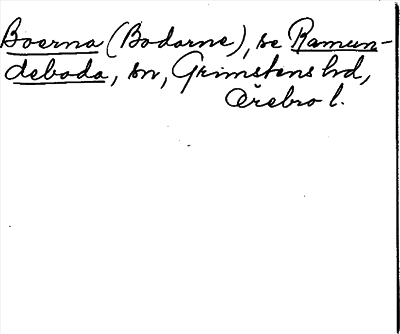 Boerna (Bodarne), se Ramun-
deboda, sn, Grimstens hd,
Örebro l.